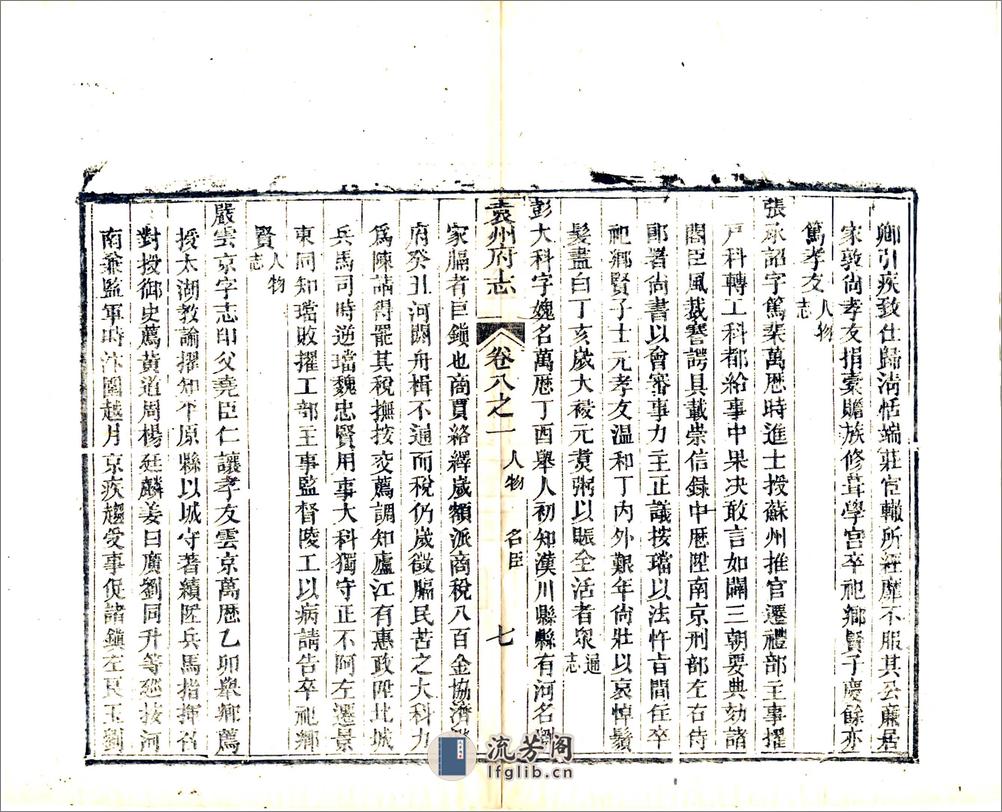 卿引疾致仕歸清恬端莊宦轍所經靡不服其公廉居
家敦尚孝友捐橐贍族修葺學宮卒祀鄉賢子慶餘亦
篤孝友人物志
張承詔字篤棐萬歷時進士授蘇州推官遷禮部主事擢
戸科轉工科都給事中果決敢言如闢三朝要典劾諸
閣臣風裁謇諤具載崇信録中歷陞南京刑部左右侍
郎署尚書以會審事力主正議按璫以法忤旨閒住卒
祀鄉賢子士元孝友温和丁內外艱年尙壯以哀悼鬚
髪盡白丁亥歲大祲元煑粥以賑全活者衆通志
彭大科字媿名萬歷丁酉舉人初知漢川縣縣有河名劉
袁州府志 卷八之一 人物 名臣 七
家膈者巨鎭也商賈絡繹歲額派商稅八百金協濟
府癸丑河關舟楫不通而稅仍歲徵膈民苦之大科力
爲陳請得罷其稅撫按交薦調知廬江有惠政陞北城
兵馬司時逆璫魏忠賢用事大科獨守正不阿左遷景
東同知璫敗擢工部主事監督陵工以病請告卒祀鄉
賢人物志
嚴雲京字志印父堯臣仁讓孝友雲京萬歷乙卯舉鄉薦
授太湖教諭擢知平原縣以城守著績陞兵馬指揮召
對授御史薦黃道周楊廷麟姜曰廣劉同升等廵按河
南兼監軍時汴圍越月京疾趨受事促諸鎭左良玉劉
流芳阁
lfglib.cn